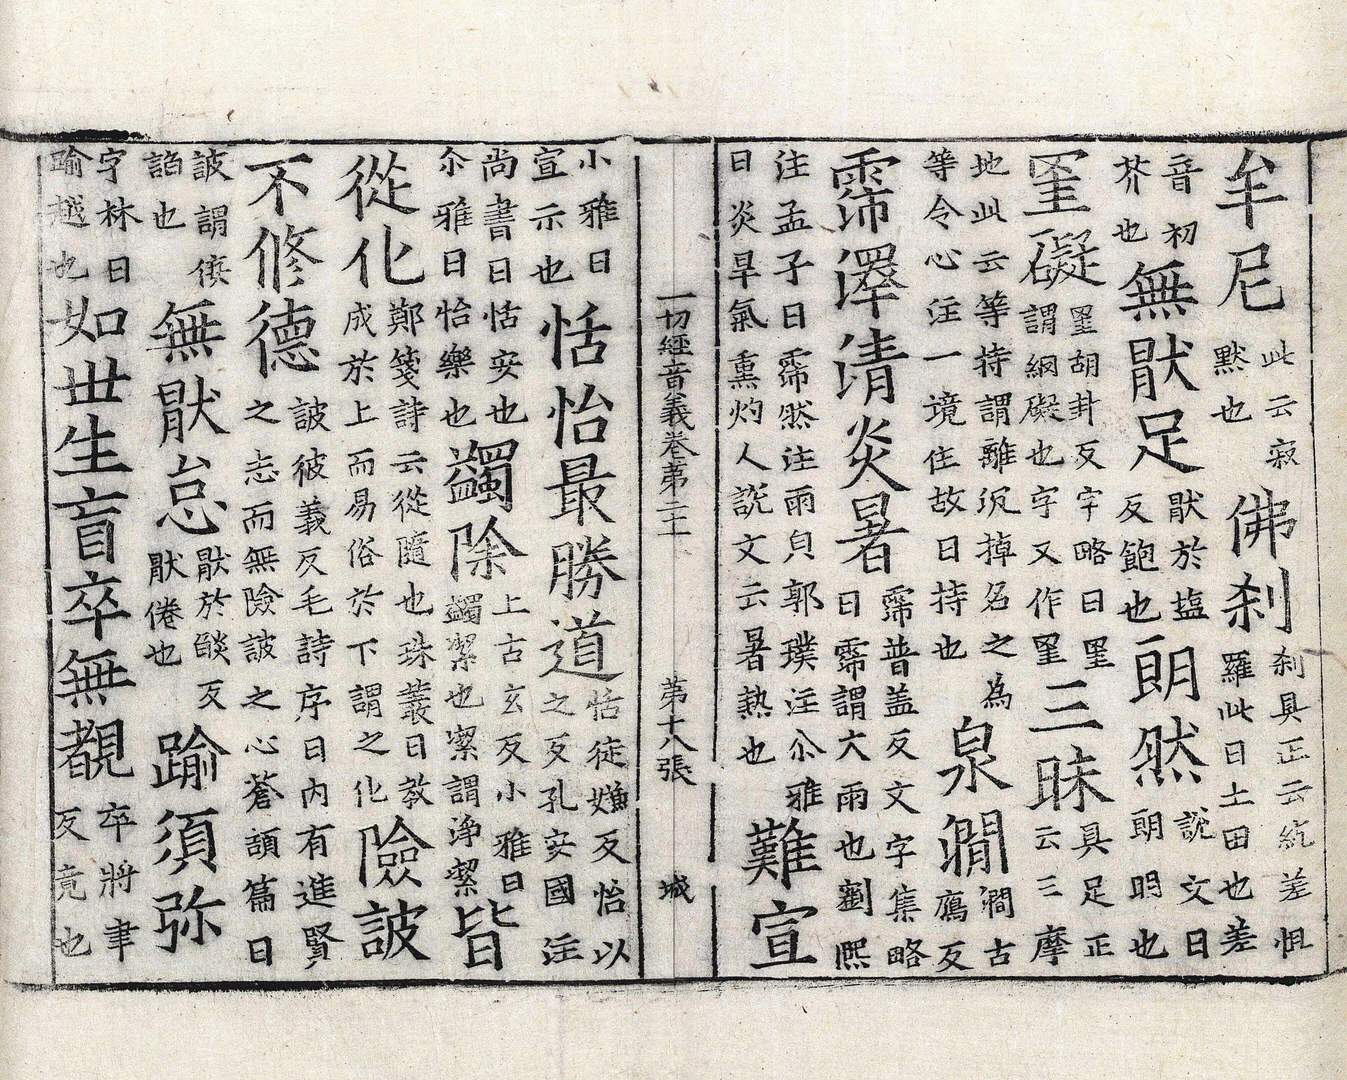 牟尼此云寂默也佛刹刹具正云紇差怛羅此曰土田也差
音初芥也無猒足猒於塩反飽也朗然說文曰朗明也
罣礙罣胡卦反字略曰罣謂網礙也字又作罣三昧具足正云三摩
地此云等持謂離沉掉名之為等令心注一境住故曰持也泉澗澗古鴈反
霈澤清炎暑霈普盖反文字集略曰霈謂大雨也劉熙
注孟子曰霈然注雨皃郭璞注尒雅曰炎旱氣熏灼人說文云暑熱也難宣
一切經音義卷第二十一 第十八張 城
小雅曰宣示也恬怡最勝道恬徒嫌反怡以之反孔安國注
尚書曰恬安也尒雅曰怡樂也蠲除上古玄反小雅曰蠲潔也潔謂淨潔皆
從化鄭箋詩云從隨也珠叢曰教成於上而易俗於下謂之化險詖
不修德詖彼義反毛詩序曰內有進賢之志而無險詖之心蒼頡篇曰
詖謂佞諂也無猒怠猒於焰反猒倦也踰須弥
字林曰踰越也如世生盲卒無覩卒將聿反竟也